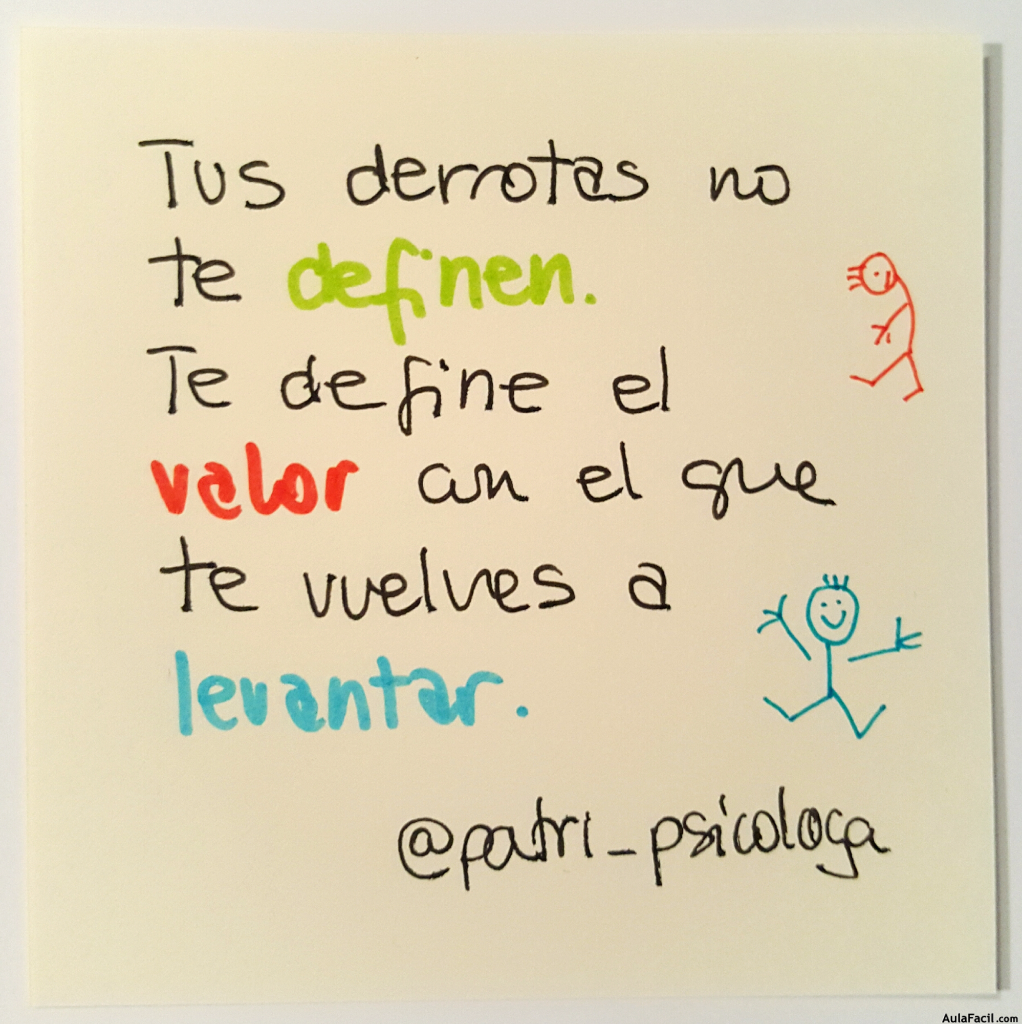 Tus derrotas no
te definen.
Te define el
valor con el que
te vuelves a
levantar.
@patri_psicologa
AulaFacil.com